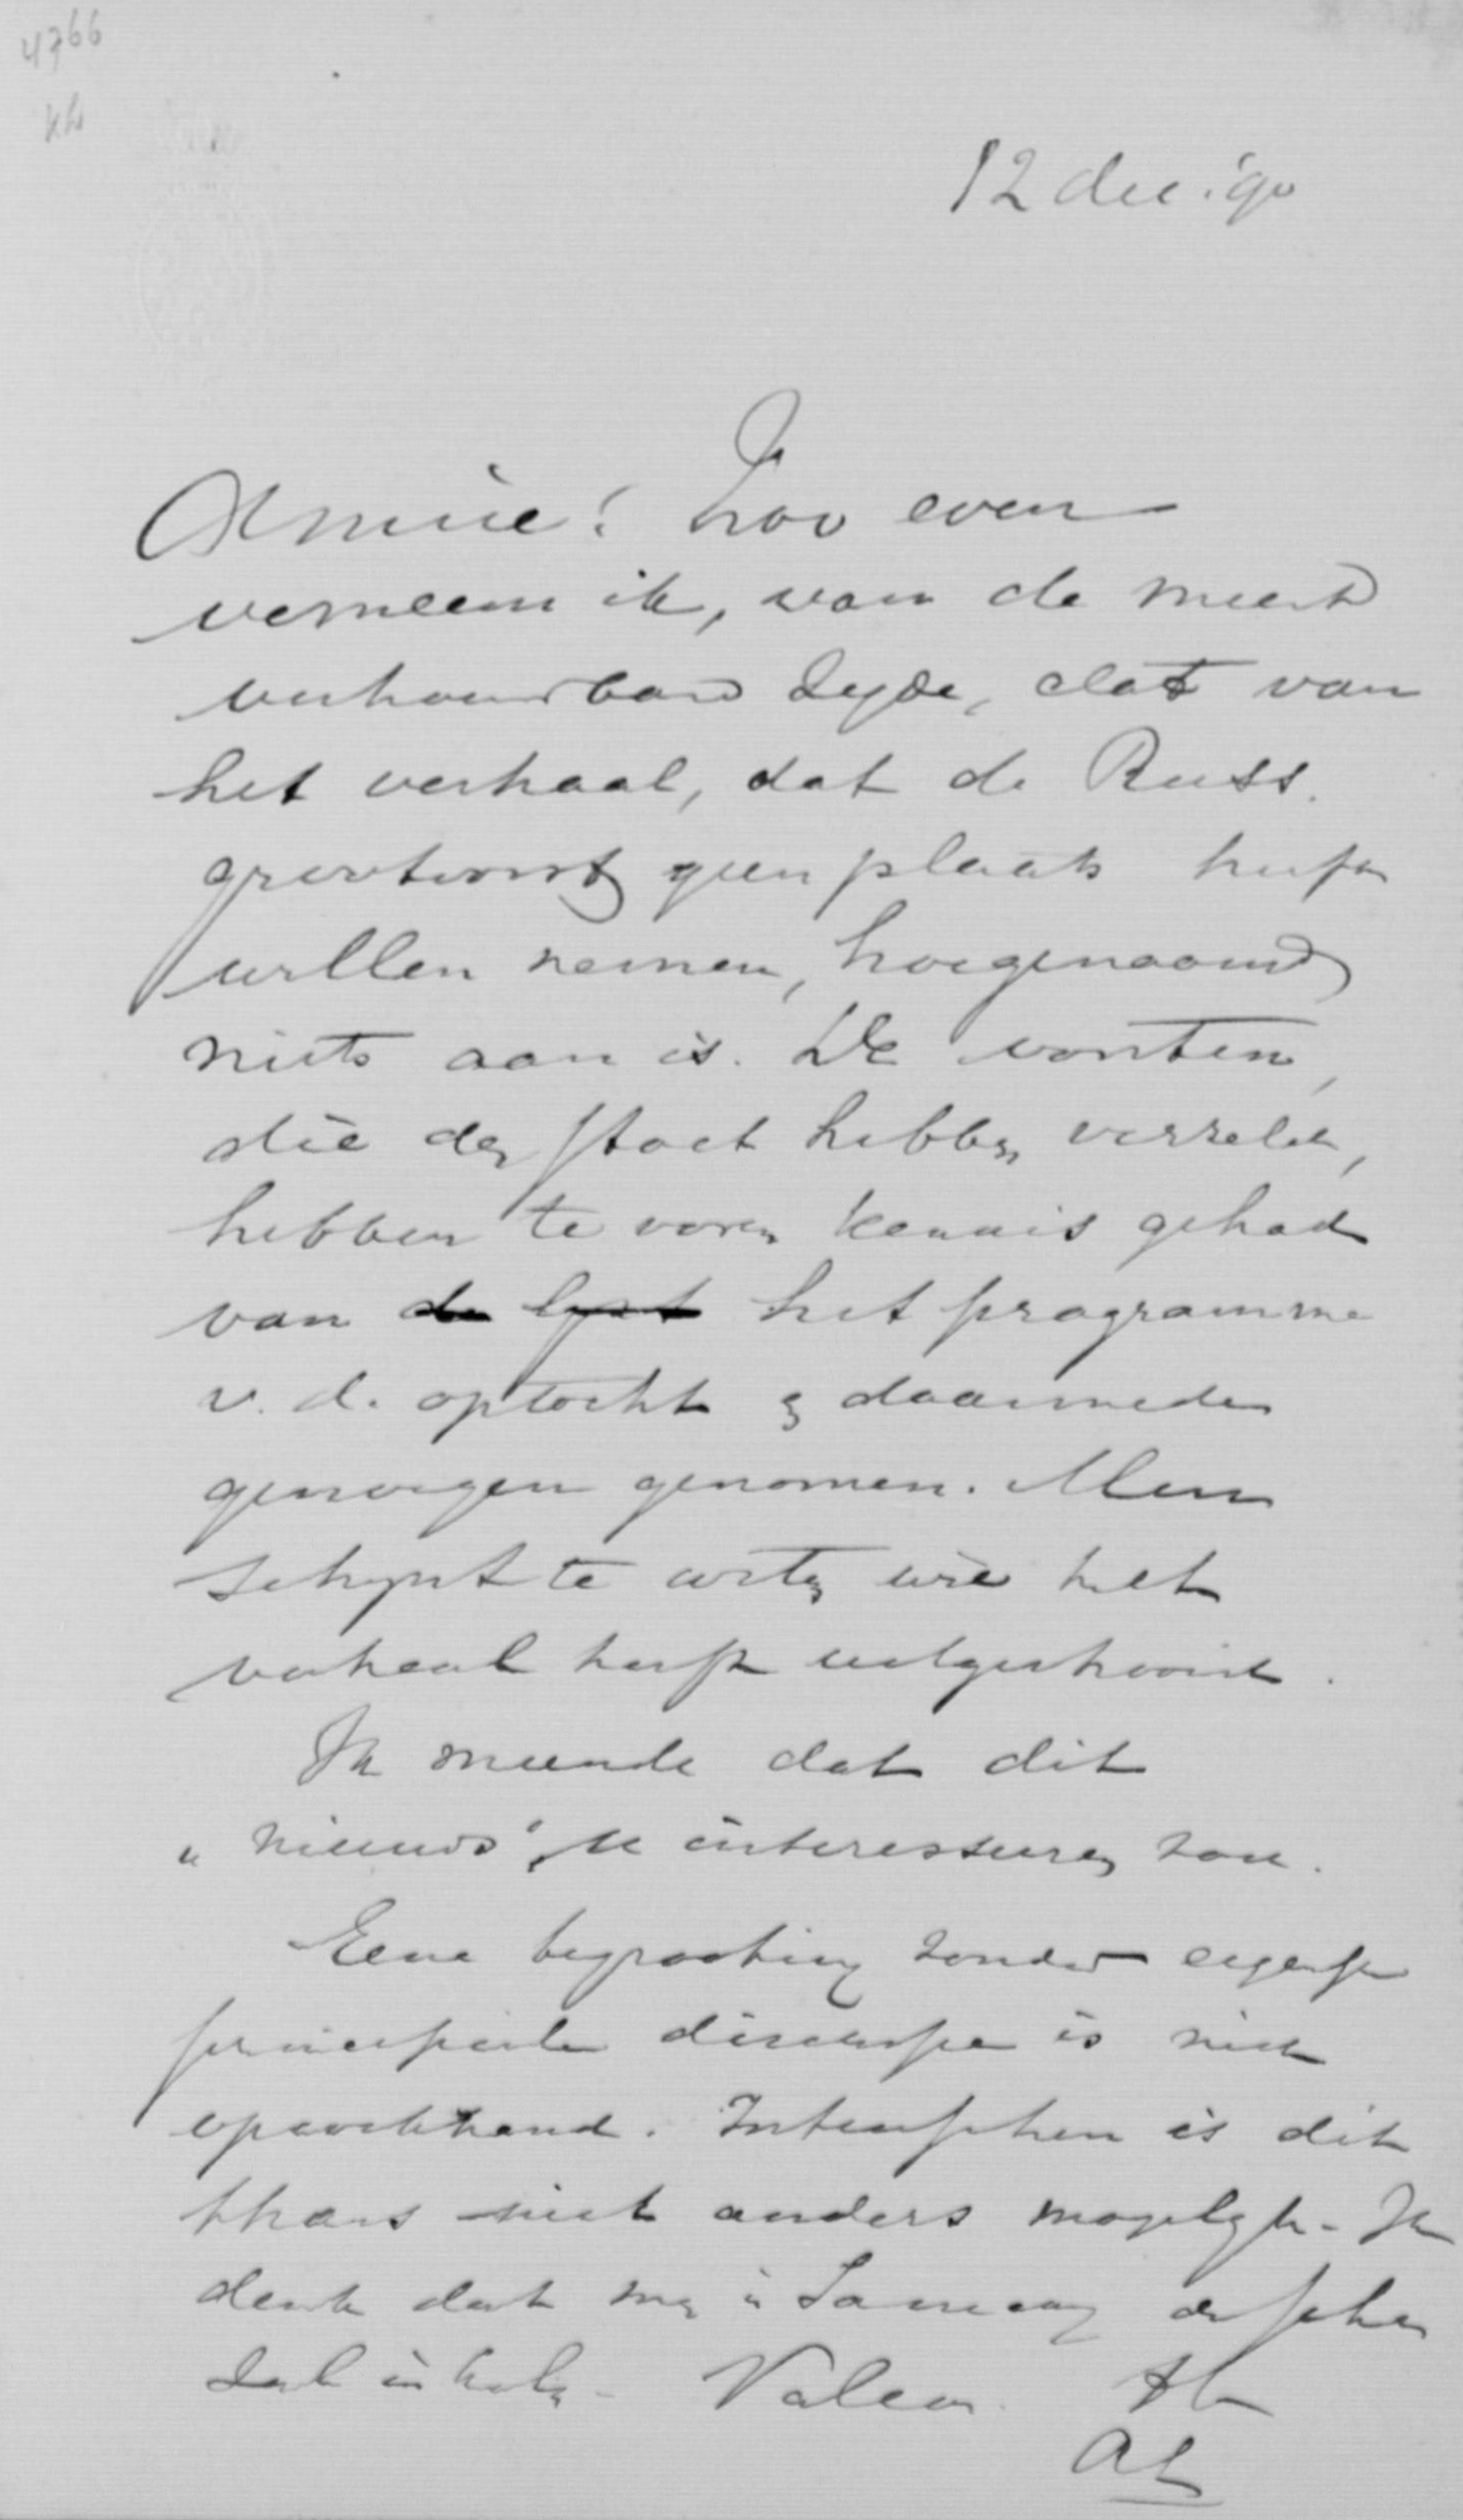 4766
12 dec. '90
Amice! Zoo even
verneem ik, van de meest
vertrouwbare zyde, dat van
het verhaal, dat de Russ.
grootvorst geen plaats heeft
willen nemen, hoegenaamd
niets aan is. De vorsten,
die den stoet hebben verzeld,
hebben te voren kennis gehad
van de lyst het programme
v. d. optocht en daarmede
genoegen genomen. Men
schynt te weten wie het
verhaal heeft uitgestrooid.
Ik meende dat dit
"nieuws" U interesseeren zou.
Eene begrooting zonder eigenlyke
principieele discussie is niet
opwekkend. Intusschen is dit
thans niet anders mogelyk. Ik
denk dat men in January de schade
zal inhalen. Vale. tt